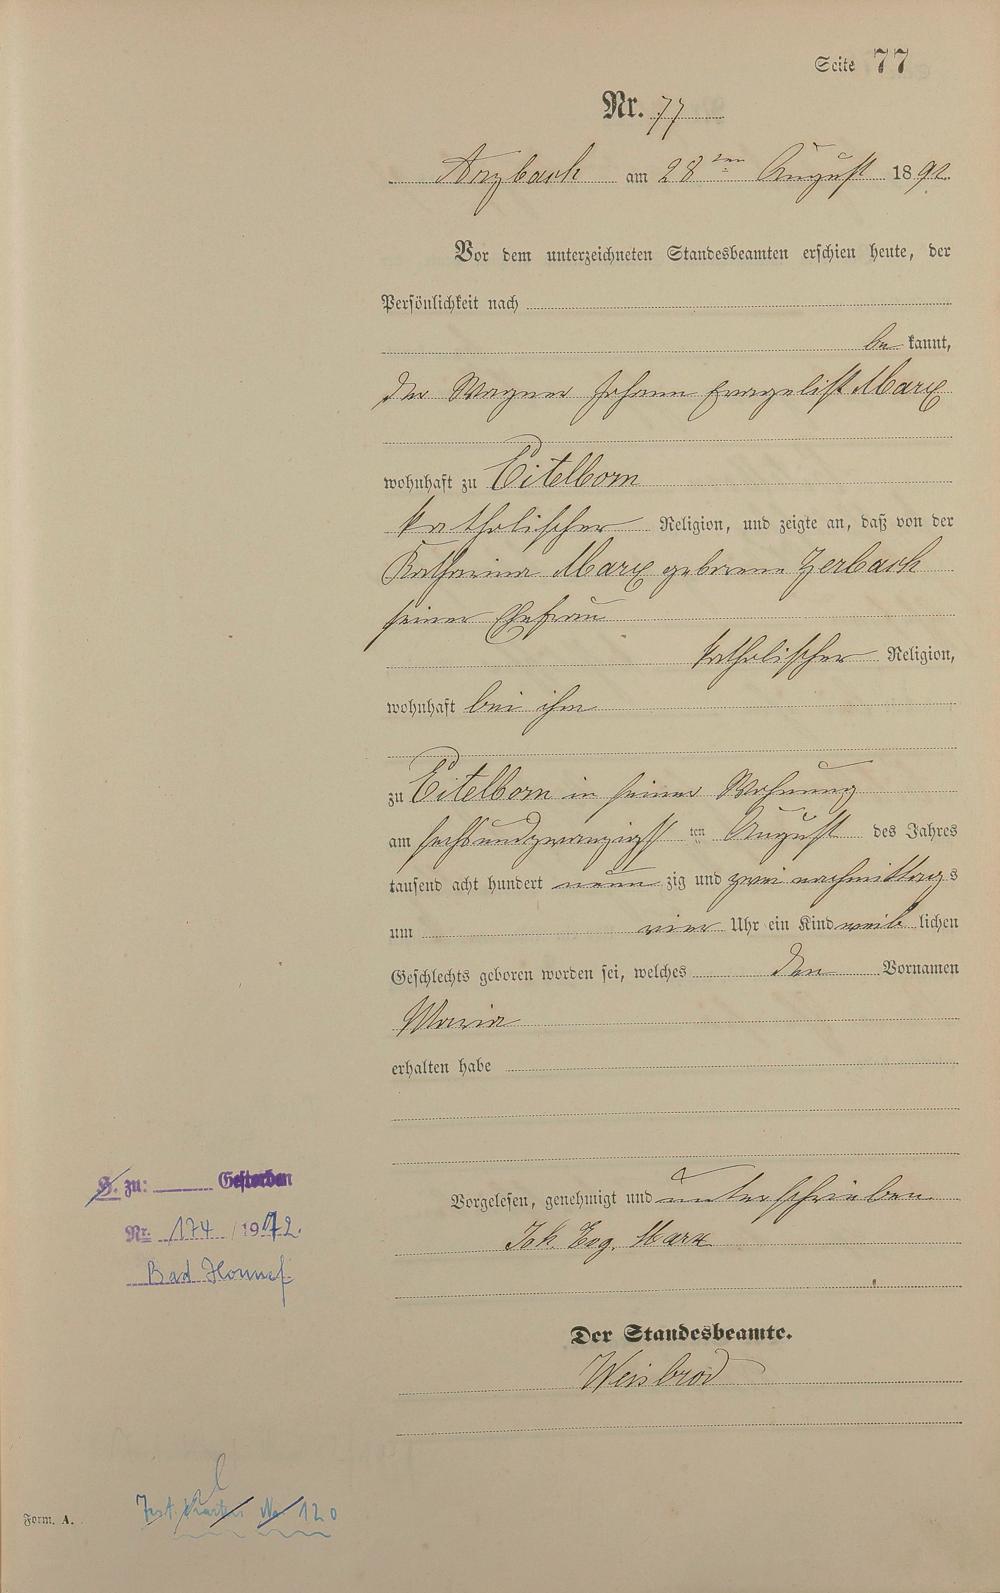 Seite 77
Nr. 77
Arzbach am 28ten August 1892.
Vor dem unterzeichneten Standesbeamten erschien heute, der
Persönlichkeit nach
be kannt,
der Wagner Johann Evangelist Marx
wohnhaft zu Eitelborn
katholischer Religion, und zeigte an, daß von der
Katharina Marx geborene Zerbach
seiner Ehefrau
katholischer Religion,
wohnhaft bei ihm
zu Eitelborn in seiner Wohnung
am sechsundzwanzigst ten August des Jahres
tausend acht hundert neun zig und zwei nachmittags
um vier Uhr ein Kind weib lichen
Geschlechts geboren worden sei, welches den Vornamen
Maria
erhalten habe
Vorgelesen, genehmigt und unterschrieben
Joh. Evg. Marx
Der Standesbeamte.
Weisbrod
G. zu: Gestorben
Nr. 174 / 1972.
Bad Honnef
No 120
Form. A.